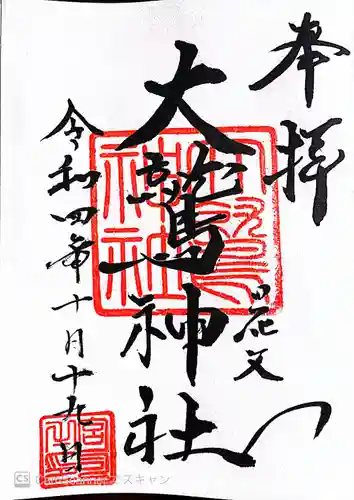 奉拝
花又
大鷲神社
令和四年十月十九日
CS CamScanner でスキャン